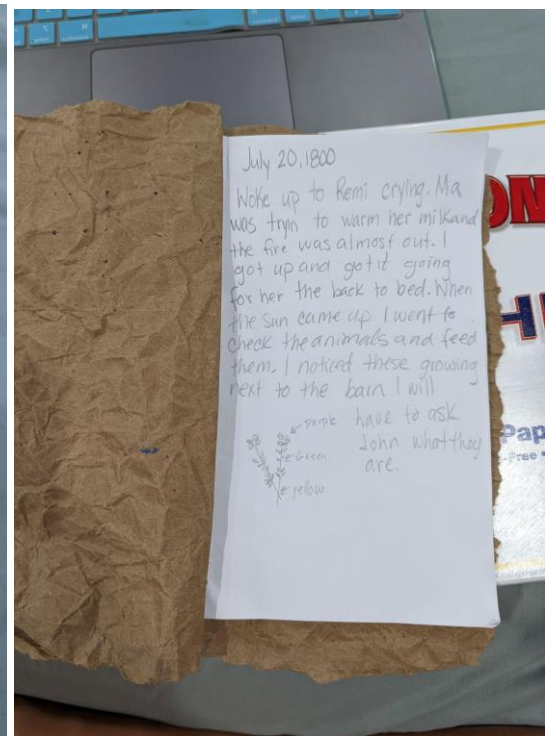 July 20, 1800
Woke up to Remi crying. Ma
was tryin to warm her milk and
the fire was almost out. I
got up and got it going
for her the back to bed. When
the sun came up I went to
check the animals and feed
them. I noticed these growing
next to the barn I will
have to ask
John what they
are.
purple
Green
yellow
ON
H
Pap
-Free